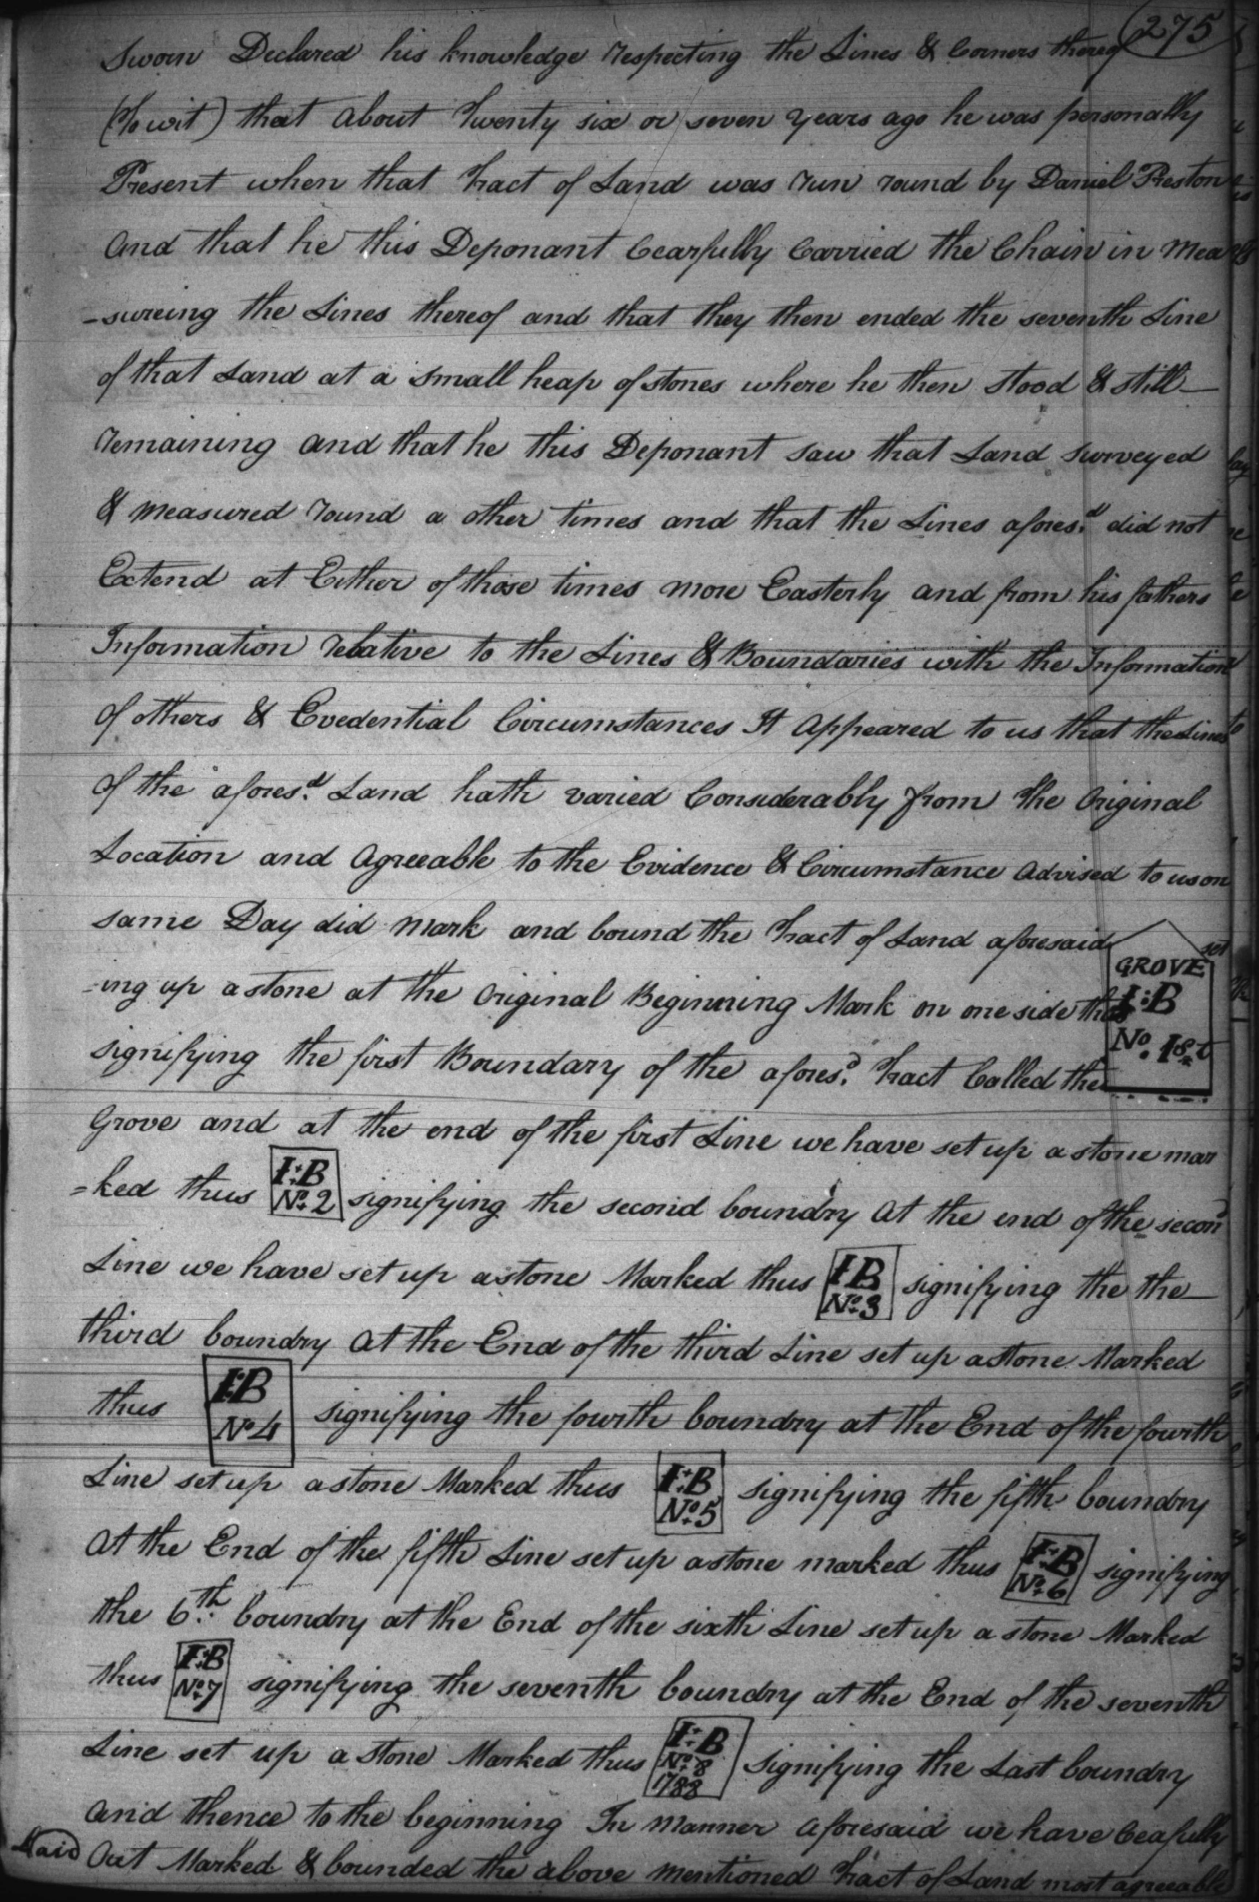 275
Sworn Declared his knowledge respecting the Lines & Corners thereof
(To wit) that About Twenty six or seven years ago he was personally
Present when that Tract of Land was run round by Daniel Preston
And that he this Deponant Cearfully Carried the Chain in Mea
-sureing the Lines thereof and that they then ended the seventh Line
of that Land at a small heap of stones where he then stood & still
remaining and that he this Deponant saw that Land surveyed
& measured round a other times and that the Lines afores.d did not
Extend at Either of those times more Easterly and from his fathers
Information relative to the Lines & Boundaries with the Information
of others & Evedential Circumstances It Appeared to us that the Lines
of the afores.d Land hath varied Considerably from the Original
Location and Agreeable to the Evidence & Circumstance Advised to us on
same Day did Mark and bound the Tract of Land aforesaid set
-ing up a stone at the Original Beginning Mark on one side thus
GROVE
I:B
No. 1st
signifying the first Boundary of the afores.d Tract Called the
Grove and at the end of the first Line we have set up a stone mar
=ked thus I:B No. 2 signifying the second boundry At the end of the second
Line we have set up a stone Marked thus I B No. 3 signifying the the
third boundry At the End of the third Line set up a stone Marked
thus I:B No 4 signifying the fourth boundry at the End of the fourth
Line set up a stone Marked thus I:B No. 5 signifying the fifth boundry
At the End of the fifth Line set up a stone marked thus I:B No. 6 signifying
the 6th boundry at the End of the sixth Line set up a stone Marked
thus I:B No. 7 signifying the seventh boundry at the End of the seventh
Line set up a stone Marked thus I:B No. 8 1788 signifying the Last boundry
And thence to the beginning In Manner Aforesaid we have Ceafully
Laid Out Marked & bounded the above mentioned Tract of Land most agreeable